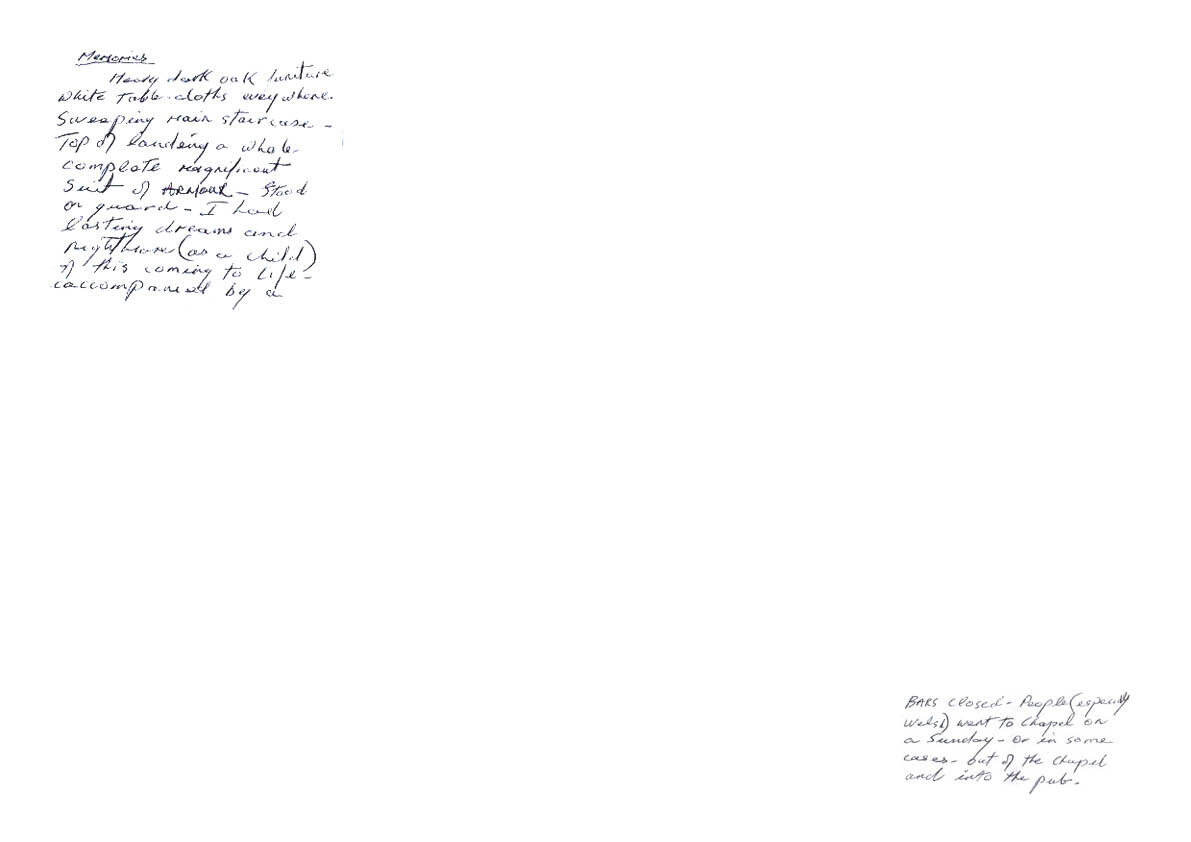 Memories
Heavy dark oak furniture
White Table-cloths everywhere.
Sweeping Main staircase -
Top of landing a whole
complete magnificent
Suit of ARMOUR - Stood
on guard - I had
lasting dreams and
nightmares (as a child)
of this coming to Life -
accompanied by a
BARS closed - People (especially
Welsh) went to Chapel on
a Sunday - or in some
cases - out of the Chapel
and into the pub.